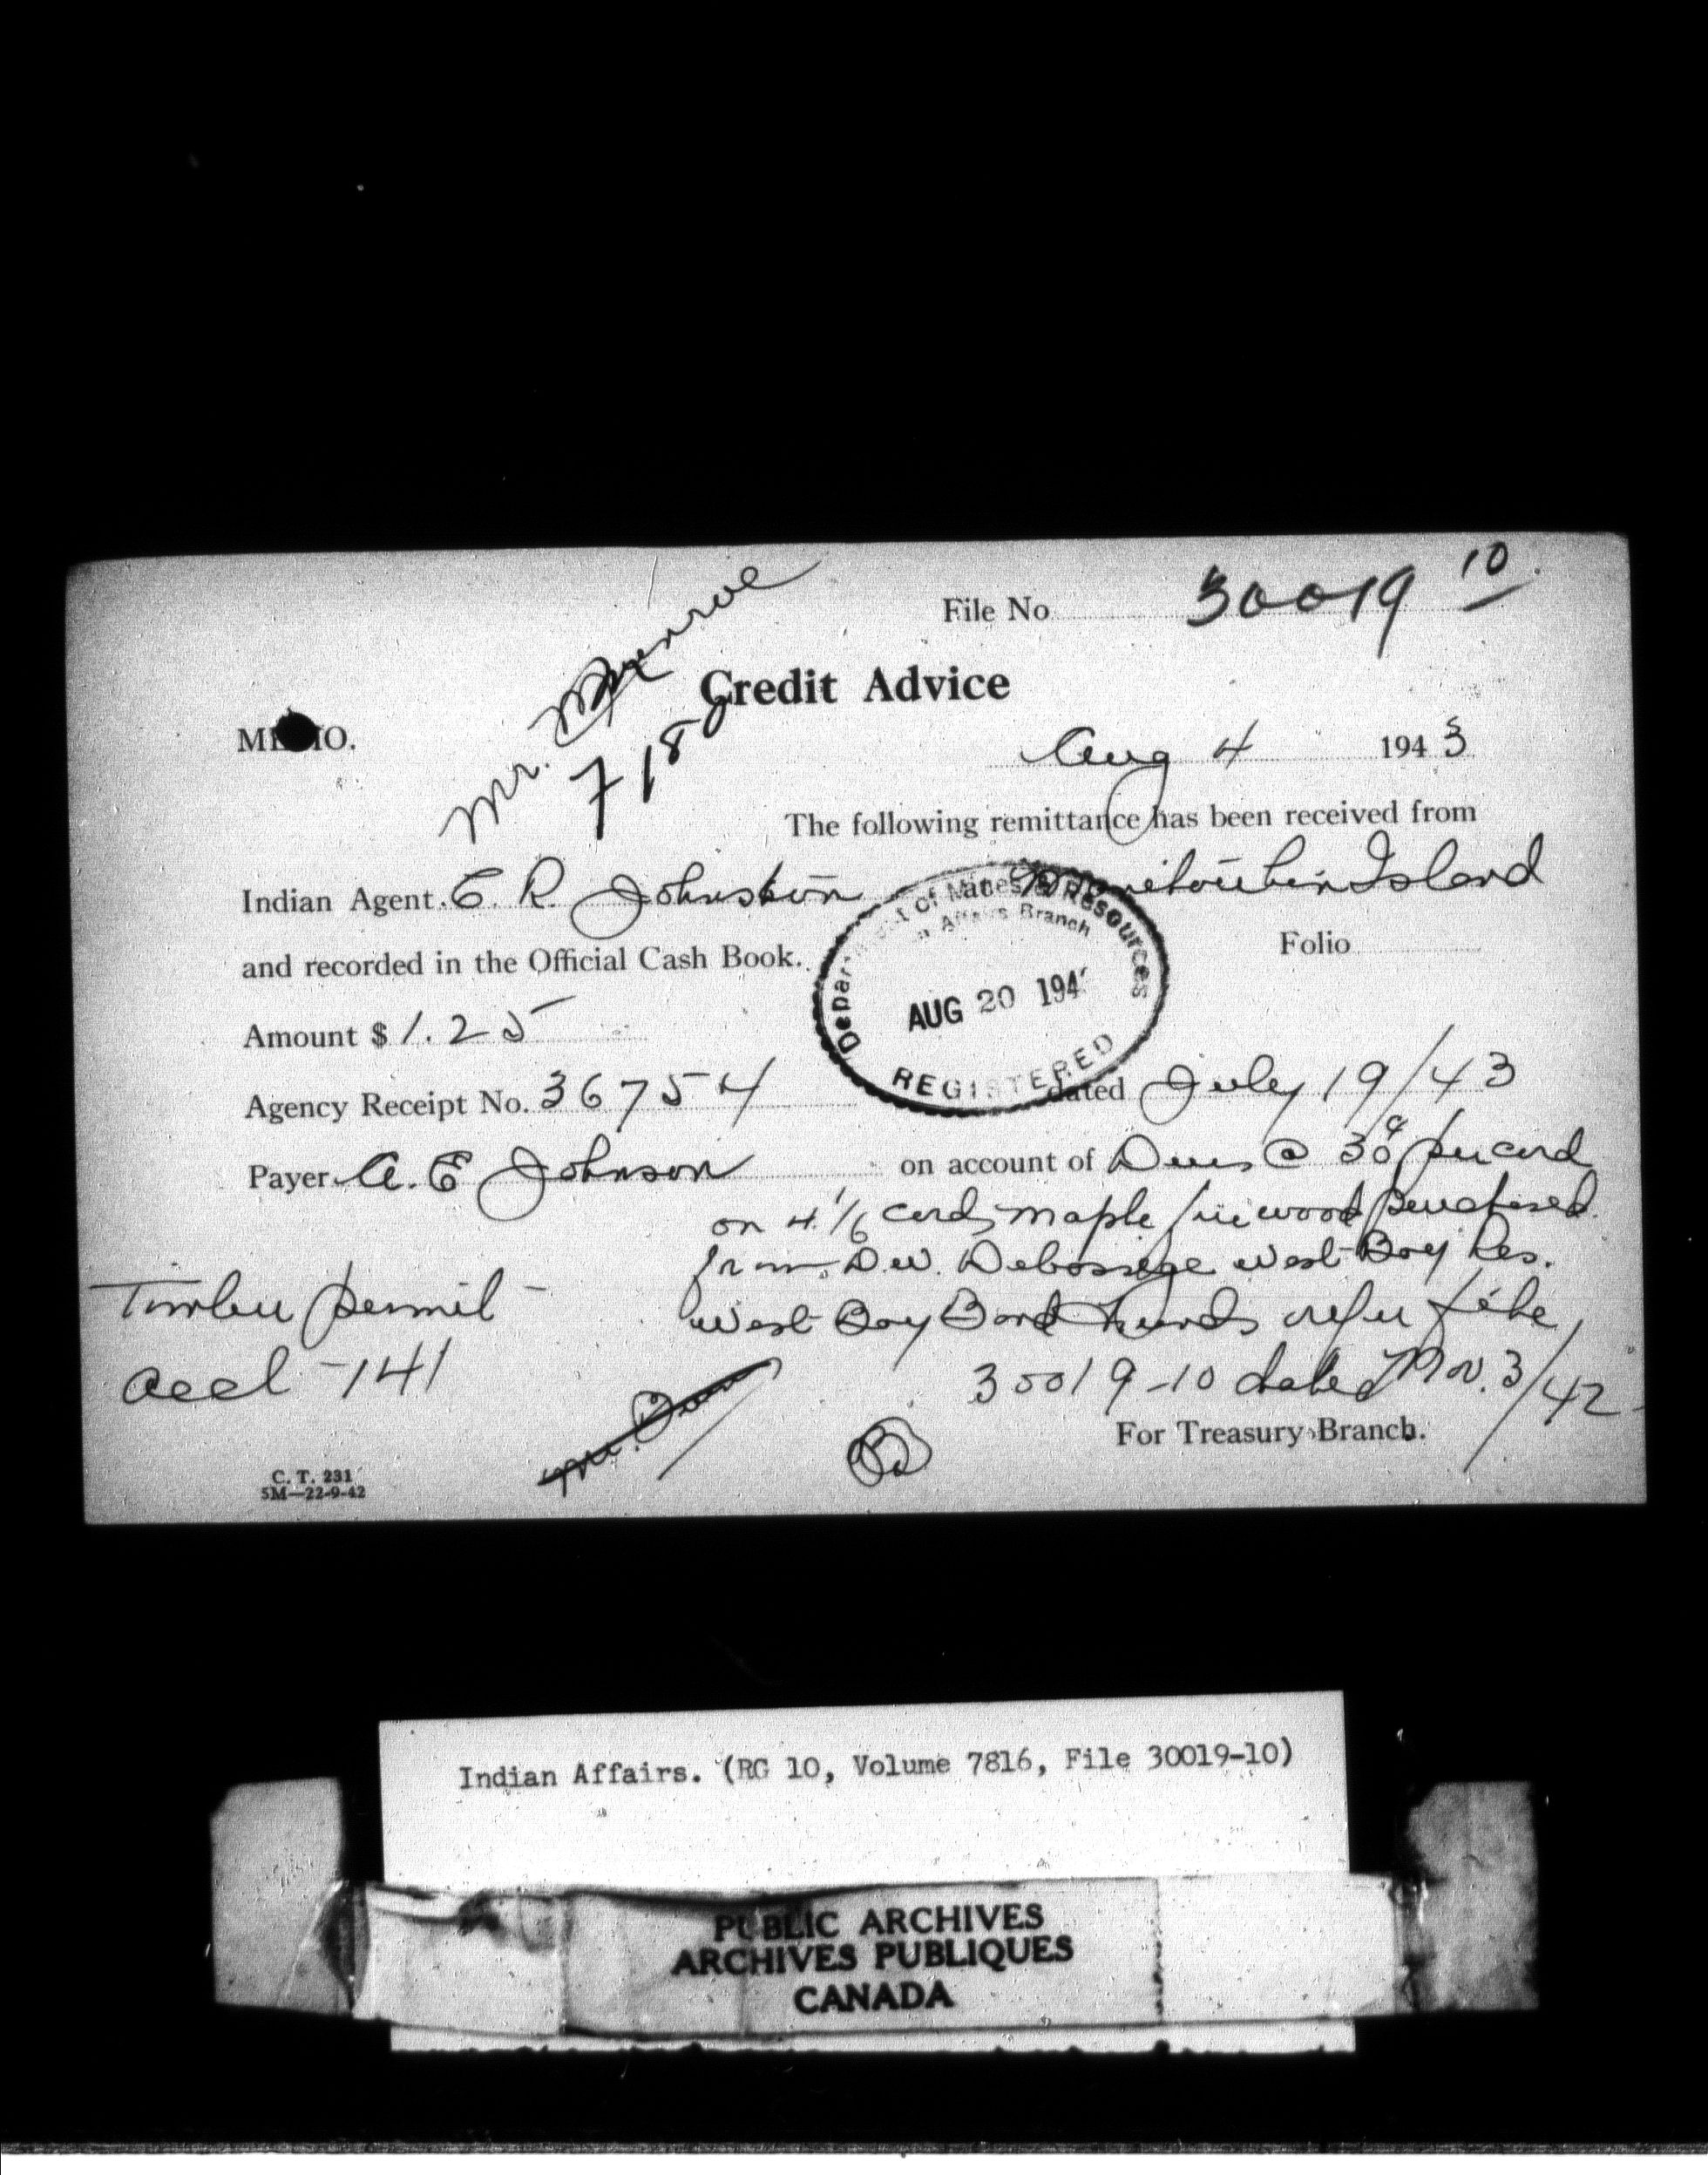 File No. 30019-10
Mr. Munroe
7180
Credit Advice
MEMO.
Aug 4 1943
The following remittance has been received from
Indian Agent. C. R. Johnston Manitoulin Island
and recorded in the Official Cash Book. Folio
Department of Mines & Resources
Indian Affairs Branch
AUG 20 194
REGISTERED
Amount $ 1.25
Agency Receipt No. 36754 dated July 19/43
Payer A. E Johnson on account of Dues @ 30¢ per cord
on 4 1/6 cords maple firewood purchased
from D.W. Debossige West Bay Res.
West Bay Band Funds refer file
30019-10 dated Nov. 3/42
Timber permit -
Acct -141
Mr.
For Treasury Branch.
C. T. 231
5M—22-9-42
Indian Affairs. (RG 10, Volume 7816, File 30019-10)
PUBLIC ARCHIVES
ARCHIVES PUBLIQUES
CANADA